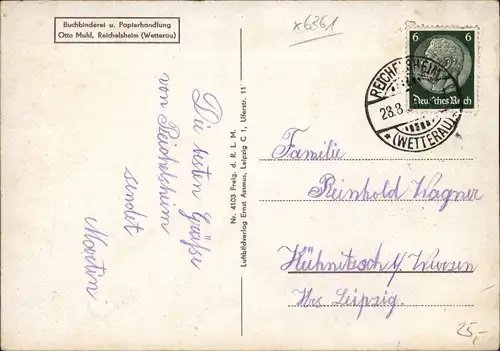 Buchbinderei u. Papierhandlung
Otto Muhl, Reichelsheim (Wetterau)
x6361
6 6
Deutsches Reich
REICHELSHEIM
28.8.
* (WETTERAU)
Die besten Grüße
von Reichelsheim
sendet
Martin
Nr. 4103 Freig. d. R. L. M.
Luftbildverlag Ernst Assmus, Leipzig C 1, Uferstr. 11
Familie
Reinhold Wagner
Kühnitzsch b/ Wurzen
Leipzig.
25,-